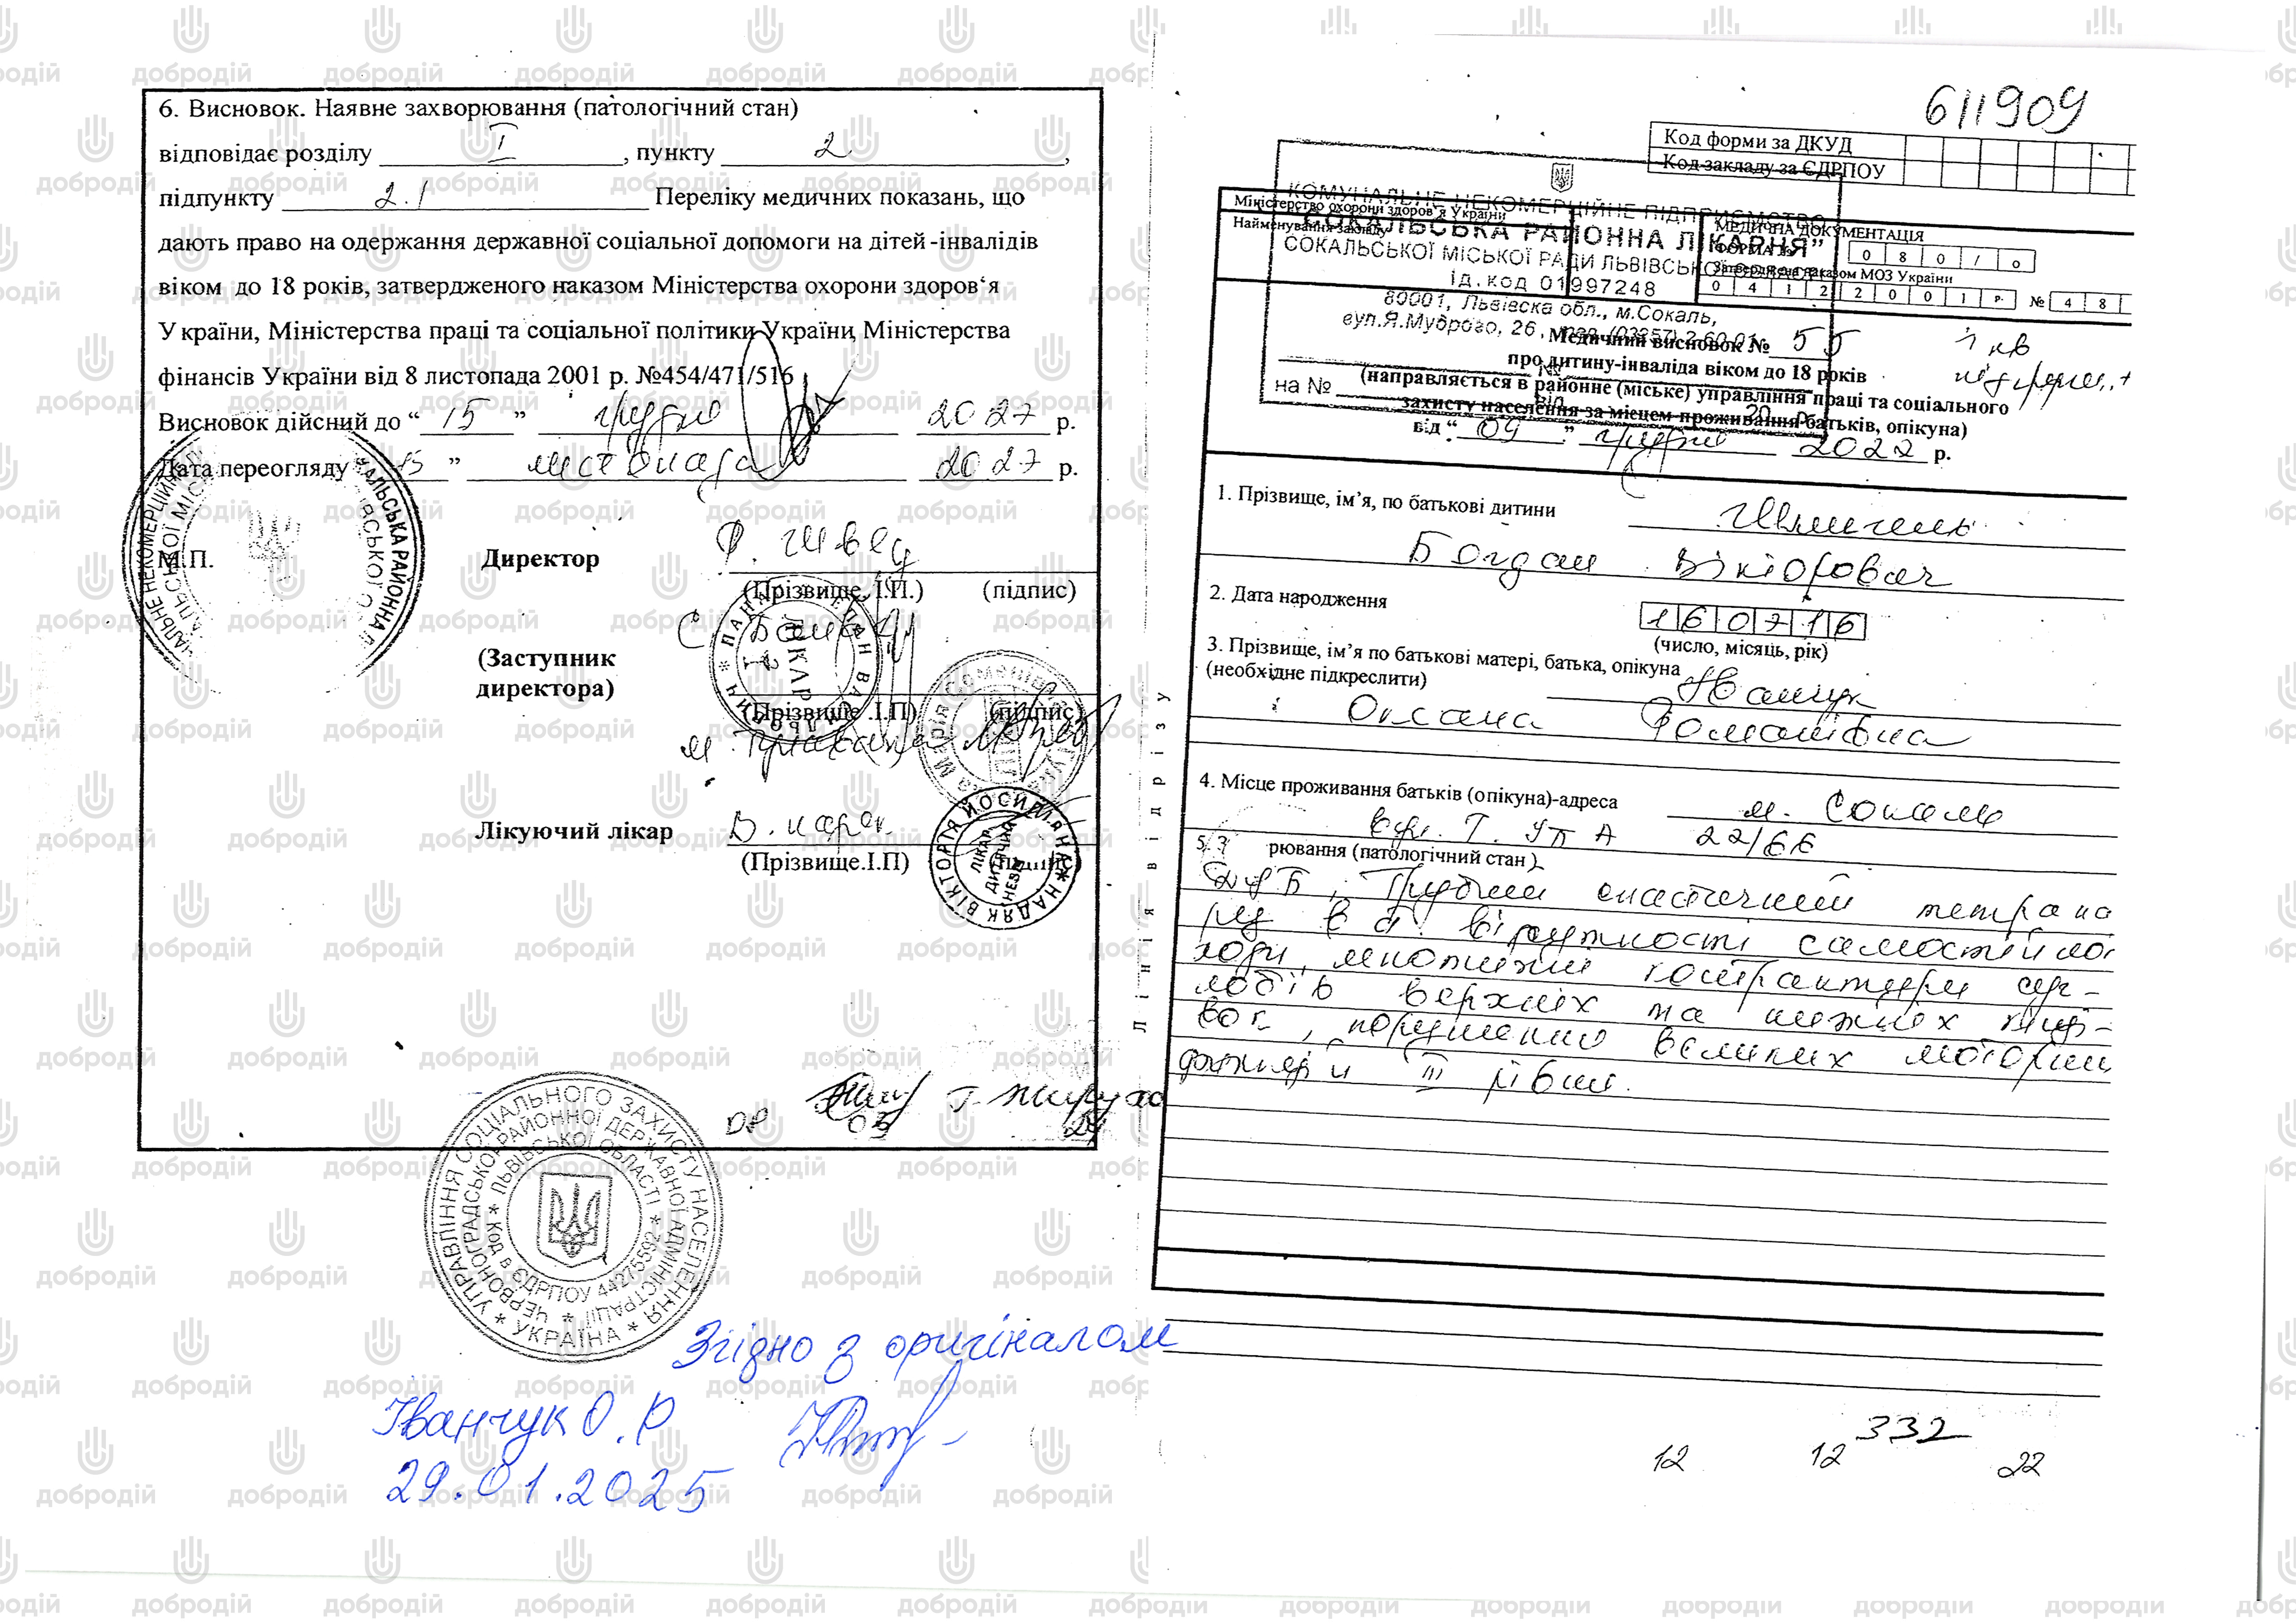 6. Висновок. Наявне захворювання (патологічний стан)
відповідає розділу I, пункту 2,
підпункту 2.1 Переліку медичних показань, що
дають право на одержання державної соціальної допомоги на дітей-інвалідів
віком до 18 років, затвердженого наказом Міністерства охорони здоров‘я
України, Міністерства праці та соціальної політики України, Міністерства
фінансів України від 8 листопада 2001 р. №454/471/516
Висновок дійсний до “ 15 ” грудня 2027 р.
Дата переогляду 15 ” листопада 2027 р.
М.П.
Директор Ф. Швец
(Прізвище. І.П.) (підпис)
(Заступник
директора)
(Прізвище .І.П) (підпис)
Лікуючий лікар
(Прізвище.І.П)
УПРАВЛІННЯ СОЦІАЛЬНОГО ЗАХИСТУ НАСЕЛЕННЯ * УКРАЇНА *
ЧЕРВОНОГРАДСЬКОЇ РАЙОННОЇ ДЕРЖАВНОЇ АДМІНІСТРАЦІЇ
ЛЬВІВСЬКОЇ ОБЛАСТІ * Код в ЄДРПОУ 44275592 *
Згідно з оригіналом
Іванчук О. Р
29.01.2025
Лінія відрізу
611909
Код форми за ДКУД
Код закладу за ЄДРПОУ
КОМУНАЛЬНЕ НЕКОМЕРЦІЙНЕ ПІДПРИЄМСТВО
Міністерство охорони здоров’я України
Найменування закладу
СОКАЛЬСЬКА РАЙОННА ЛІКАРНЯ”
СОКАЛЬСЬКОЇ МІСЬКОЇ РАДИ ЛЬВІВСЬКОЇ ОБЛАСТІ
ід.код 01997248
80001, Львівска обл., м.Сокаль,
вул.Я.Мудрого, 26, тел. (03257) 2-60-01
МЕДИЧНА ДОКУМЕНТАЦІЯ
ФОРМА № 0 8 0 / о
Затверджена наказом МОЗ України
0 4 1 2 2 0 0 1 р. № 4 8
Медичний висновок № 55
про дитину-інваліда віком до 18 років
на №
(направляється в районне (міське) управління праці та соціального
захисту населення за місцем проживання батьків, опікуна)
від “ 09 ” грудня 2022 р.
1. Прізвище, ім’я, по батькові дитини
Богдан Вікторович
2. Дата народження 160716
(число, місяць, рік)
3. Прізвище, ім’я по батькові матері, батька, опікуна
(необхідне підкреслити) Іванчук
Оксана Романівна
4. Місце проживання батьків (опікуна)-адреса м. Сокаль
вул. Г. УПА 22/66
рювання (патологічний стан)
Грубий спастичний тетрапа
рез відсутності самостійної
ходи, множинні контрактури суг-
лобів верхніх та нижніх кінці-
вок, порушення великих моторних
функцій III рівня.
332
12 12 22
добродій